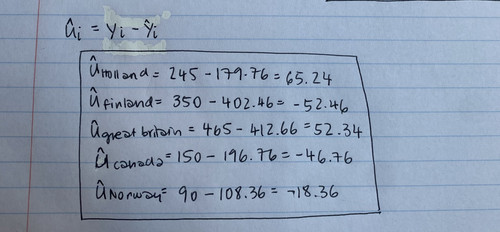 ûi = yi - ŷi
ûHolland = 245 - 179.76 = 65.24
ûfinland = 350 - 402.46 = -52.46
ûgreat britain = 465 - 412.66 = 52.34
ûcanada = 150 - 196.76 = -46.76
ûNorway = 90 - 108.36 = -18.36